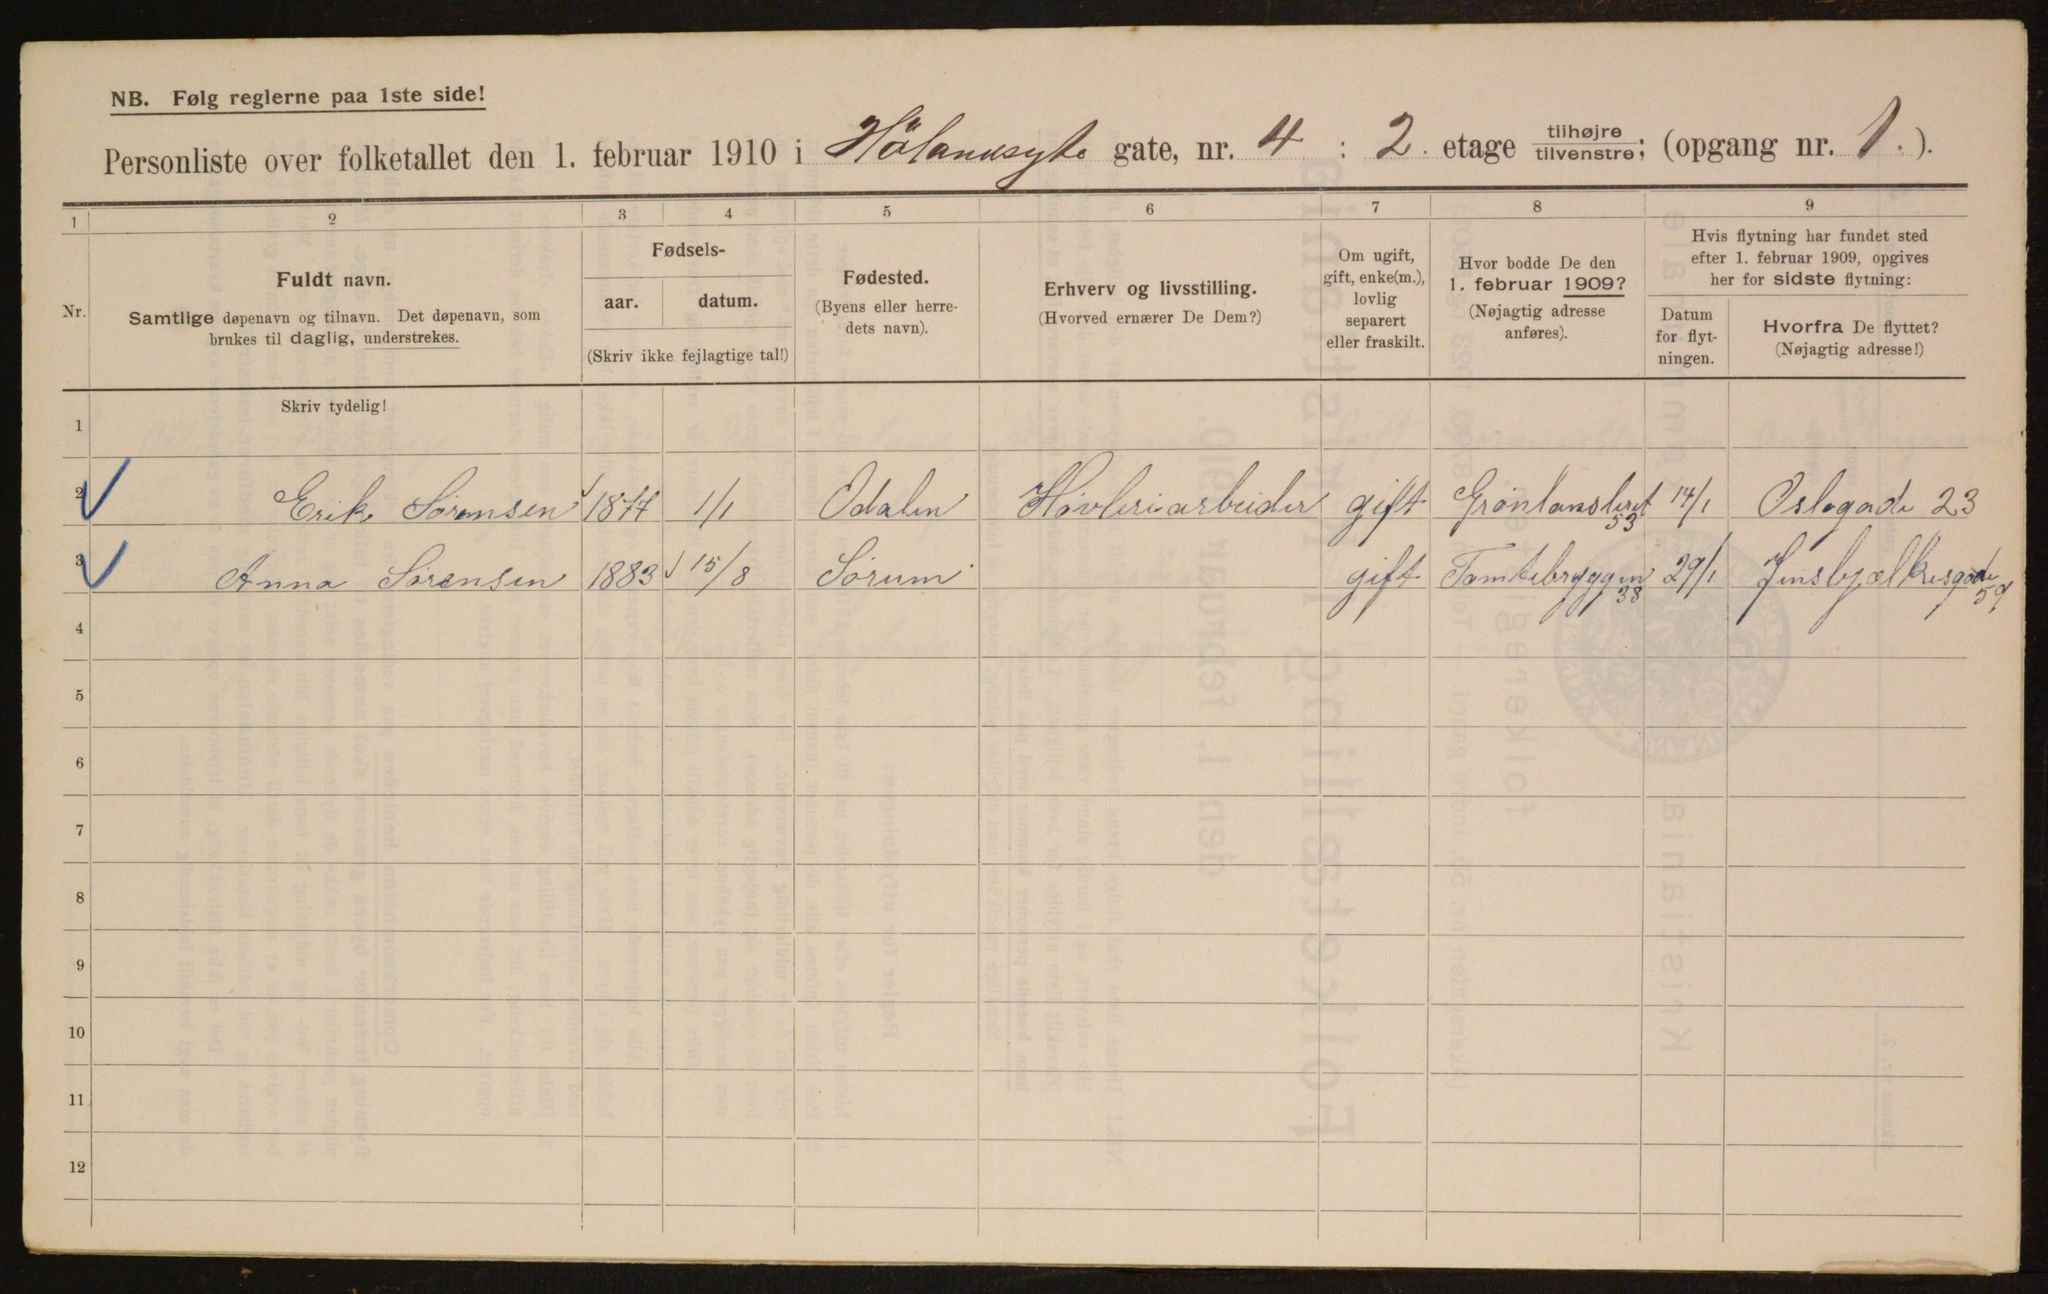 NB. Følg reglerne paa 1ste side!
Personliste over folketallet den 1. februar 1910 i Hölandsgte gate, nr. 4 : 2. etage tilhøjre/tilvenstre; (opgang nr. 1.).
1 2 3 4 5 6 7 8 9
Nr.
Fuldt navn.
Samtlige døpenavn og tilnavn. Det døpenavn, som
brukes til daglig, understrekes.
Fødsels-
aar. datum.
(Skriv ikke fejlagtige tal!)
Fødested.
(Byens eller herre-
dets navn).
Erhverv og livsstilling.
(Hvorved ernærer De Dem?)
Om ugift,
gift, enke(m.),
lovlig
separert
eller fraskilt.
Hvor bodde De den
1. februar 1909?
(Nøjagtig adresse
anføres).
Hvis flytning har fundet sted
efter 1. februar 1909, opgives
her for sidste flytning:
Datum
for flyt-
ningen.
Hvorfra De flyttet?
(Nøjagtig adresse!)
Skriv tydelig!
1
2 Erik Sørensen 1877 1/1 Odalen Høvleriarbeider gift Grønlansleret 53 14/1 Oslogade 23
3 Anna Sørensen 1883 15/8 Sørum gift Tomtebryggen 38 29/1 Jensbjælkesgade 59
4
5
6
7
8
9
10
11
12